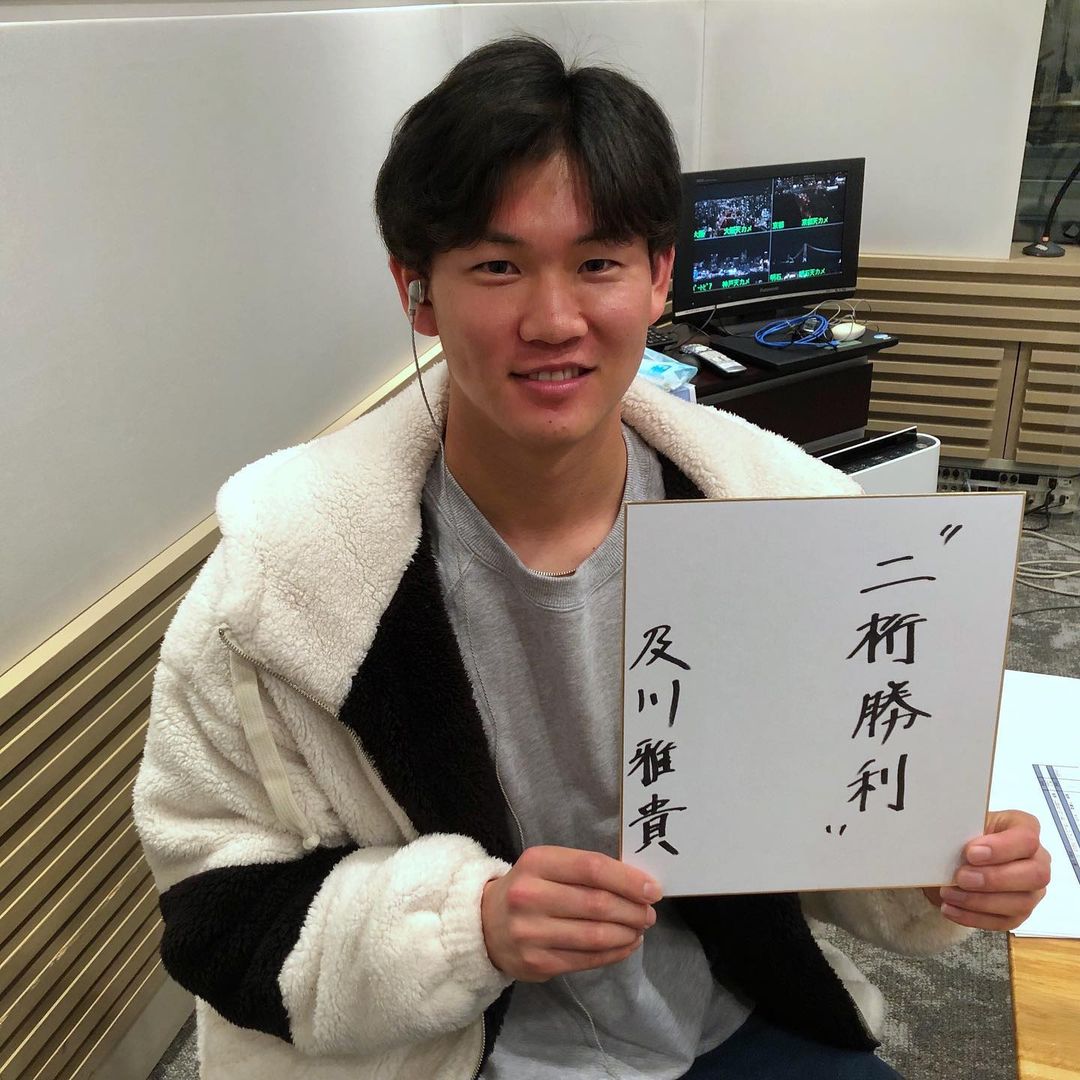 〝二桁勝利〟
及川雅貴
大阪天カメ
京都
京都天カメ
神戸天カメ
明石
明石天カメ
Panasonic